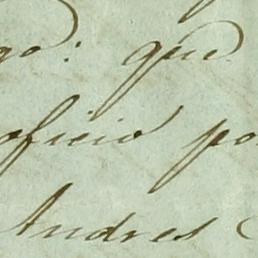 go: que
oficio po
Andres